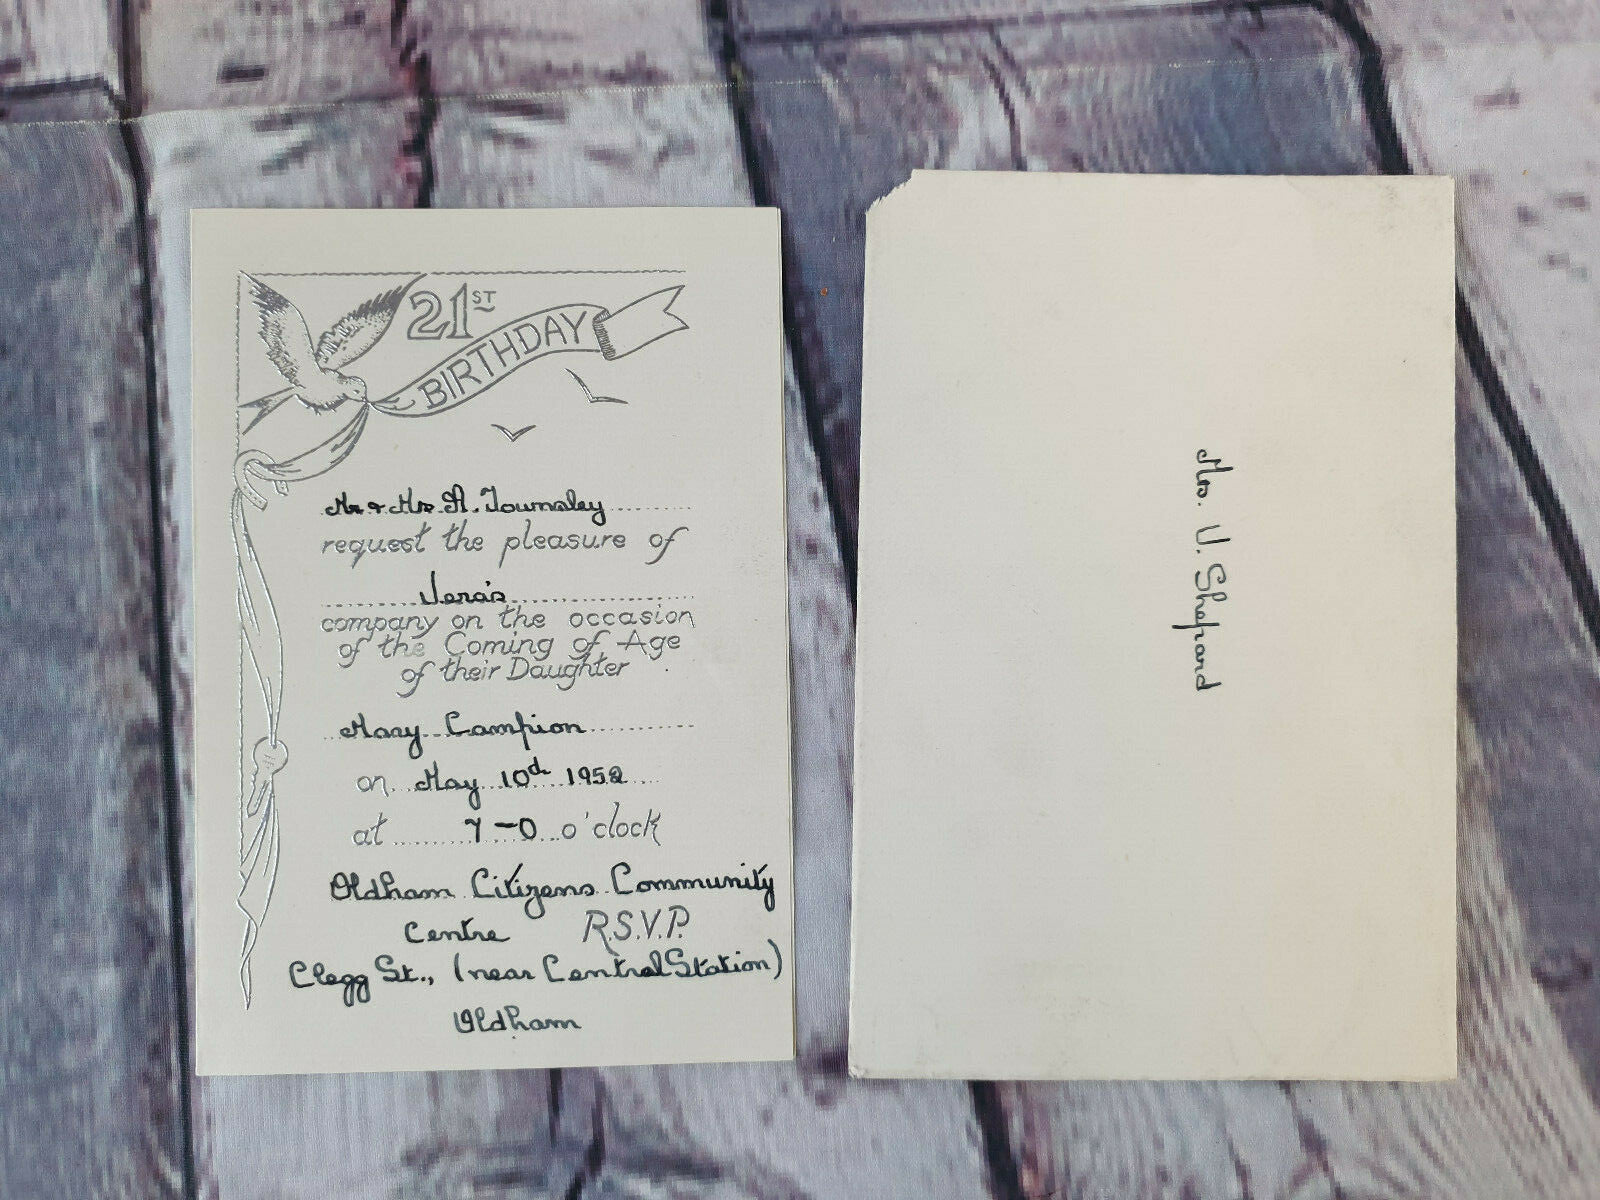 21ST
BIRTHDAY
Mr & Mrs A. Townsley
request the pleasure of
Vera's
company on the occasion
of the Coming of Age
of their Daughter
Mary Campion
on May 10th 1952
at 7-0 o'clock
Oldham Citizens Community
Centre R.S.V.P.
Clegg St., (near Central Station)
Oldham
Mrs. V. Shepard